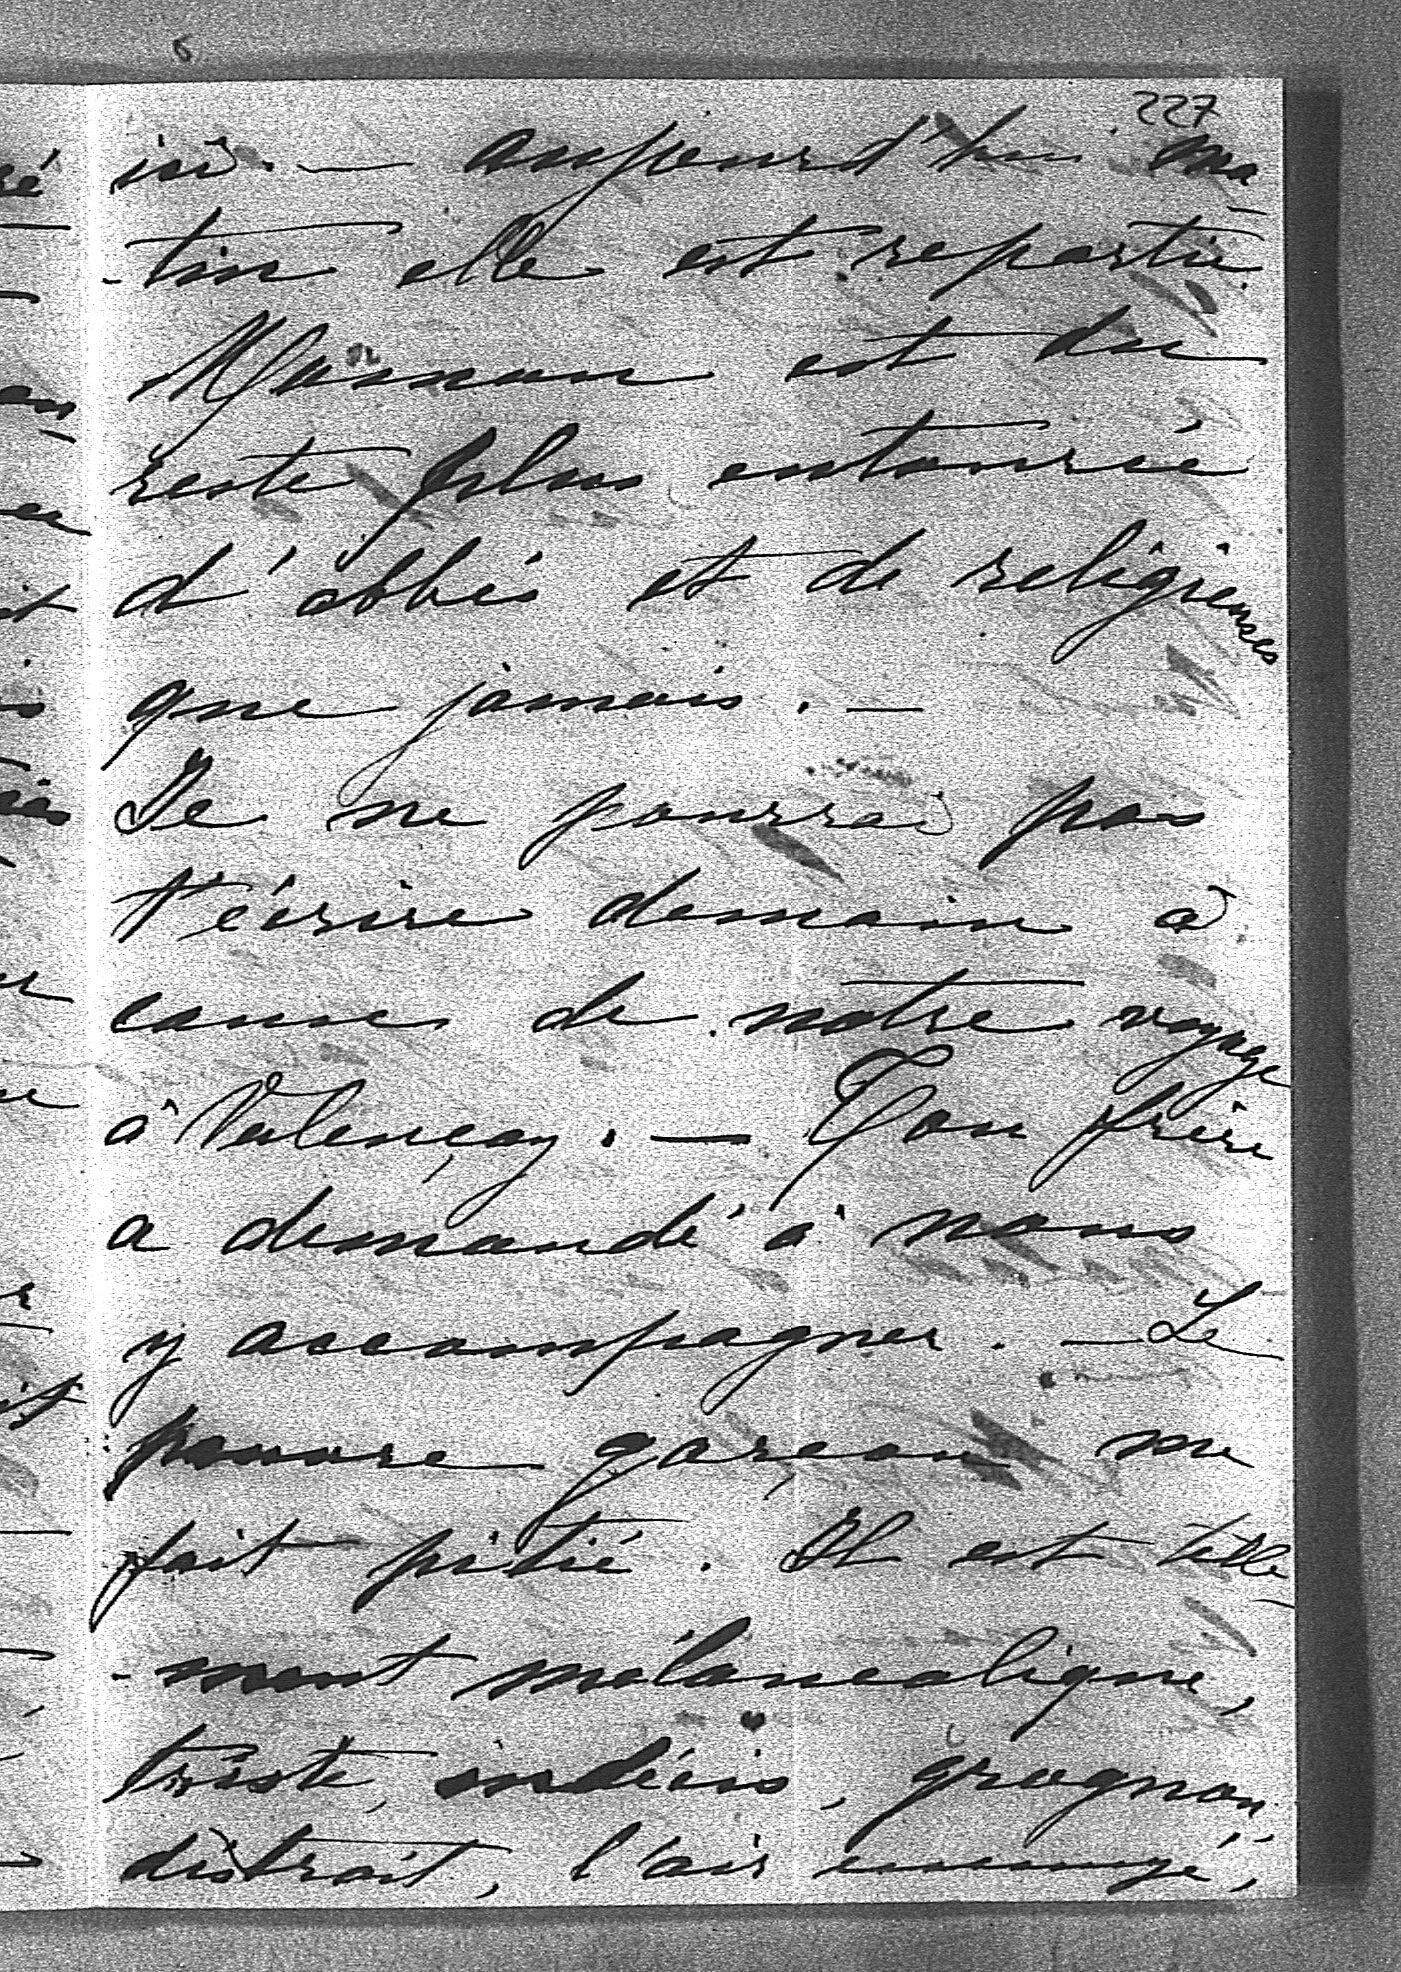 227
ici. — aujourd'hui ma-
-tin elle est repartie.
Maman est du
reste plus entourée
d'abbés et de religieuses
que jamais. —
Je ne pourrai pas
t'écrire demain à
cause de notre voyage
à Valençay. — Ton frère
a demandé à nous
y accompagner. — Le
pauvre garçon me
fait pitié. Il est telle-
-ment mélancolique,
triste, indécis, grognon,
distrait, l'air ennuyé,